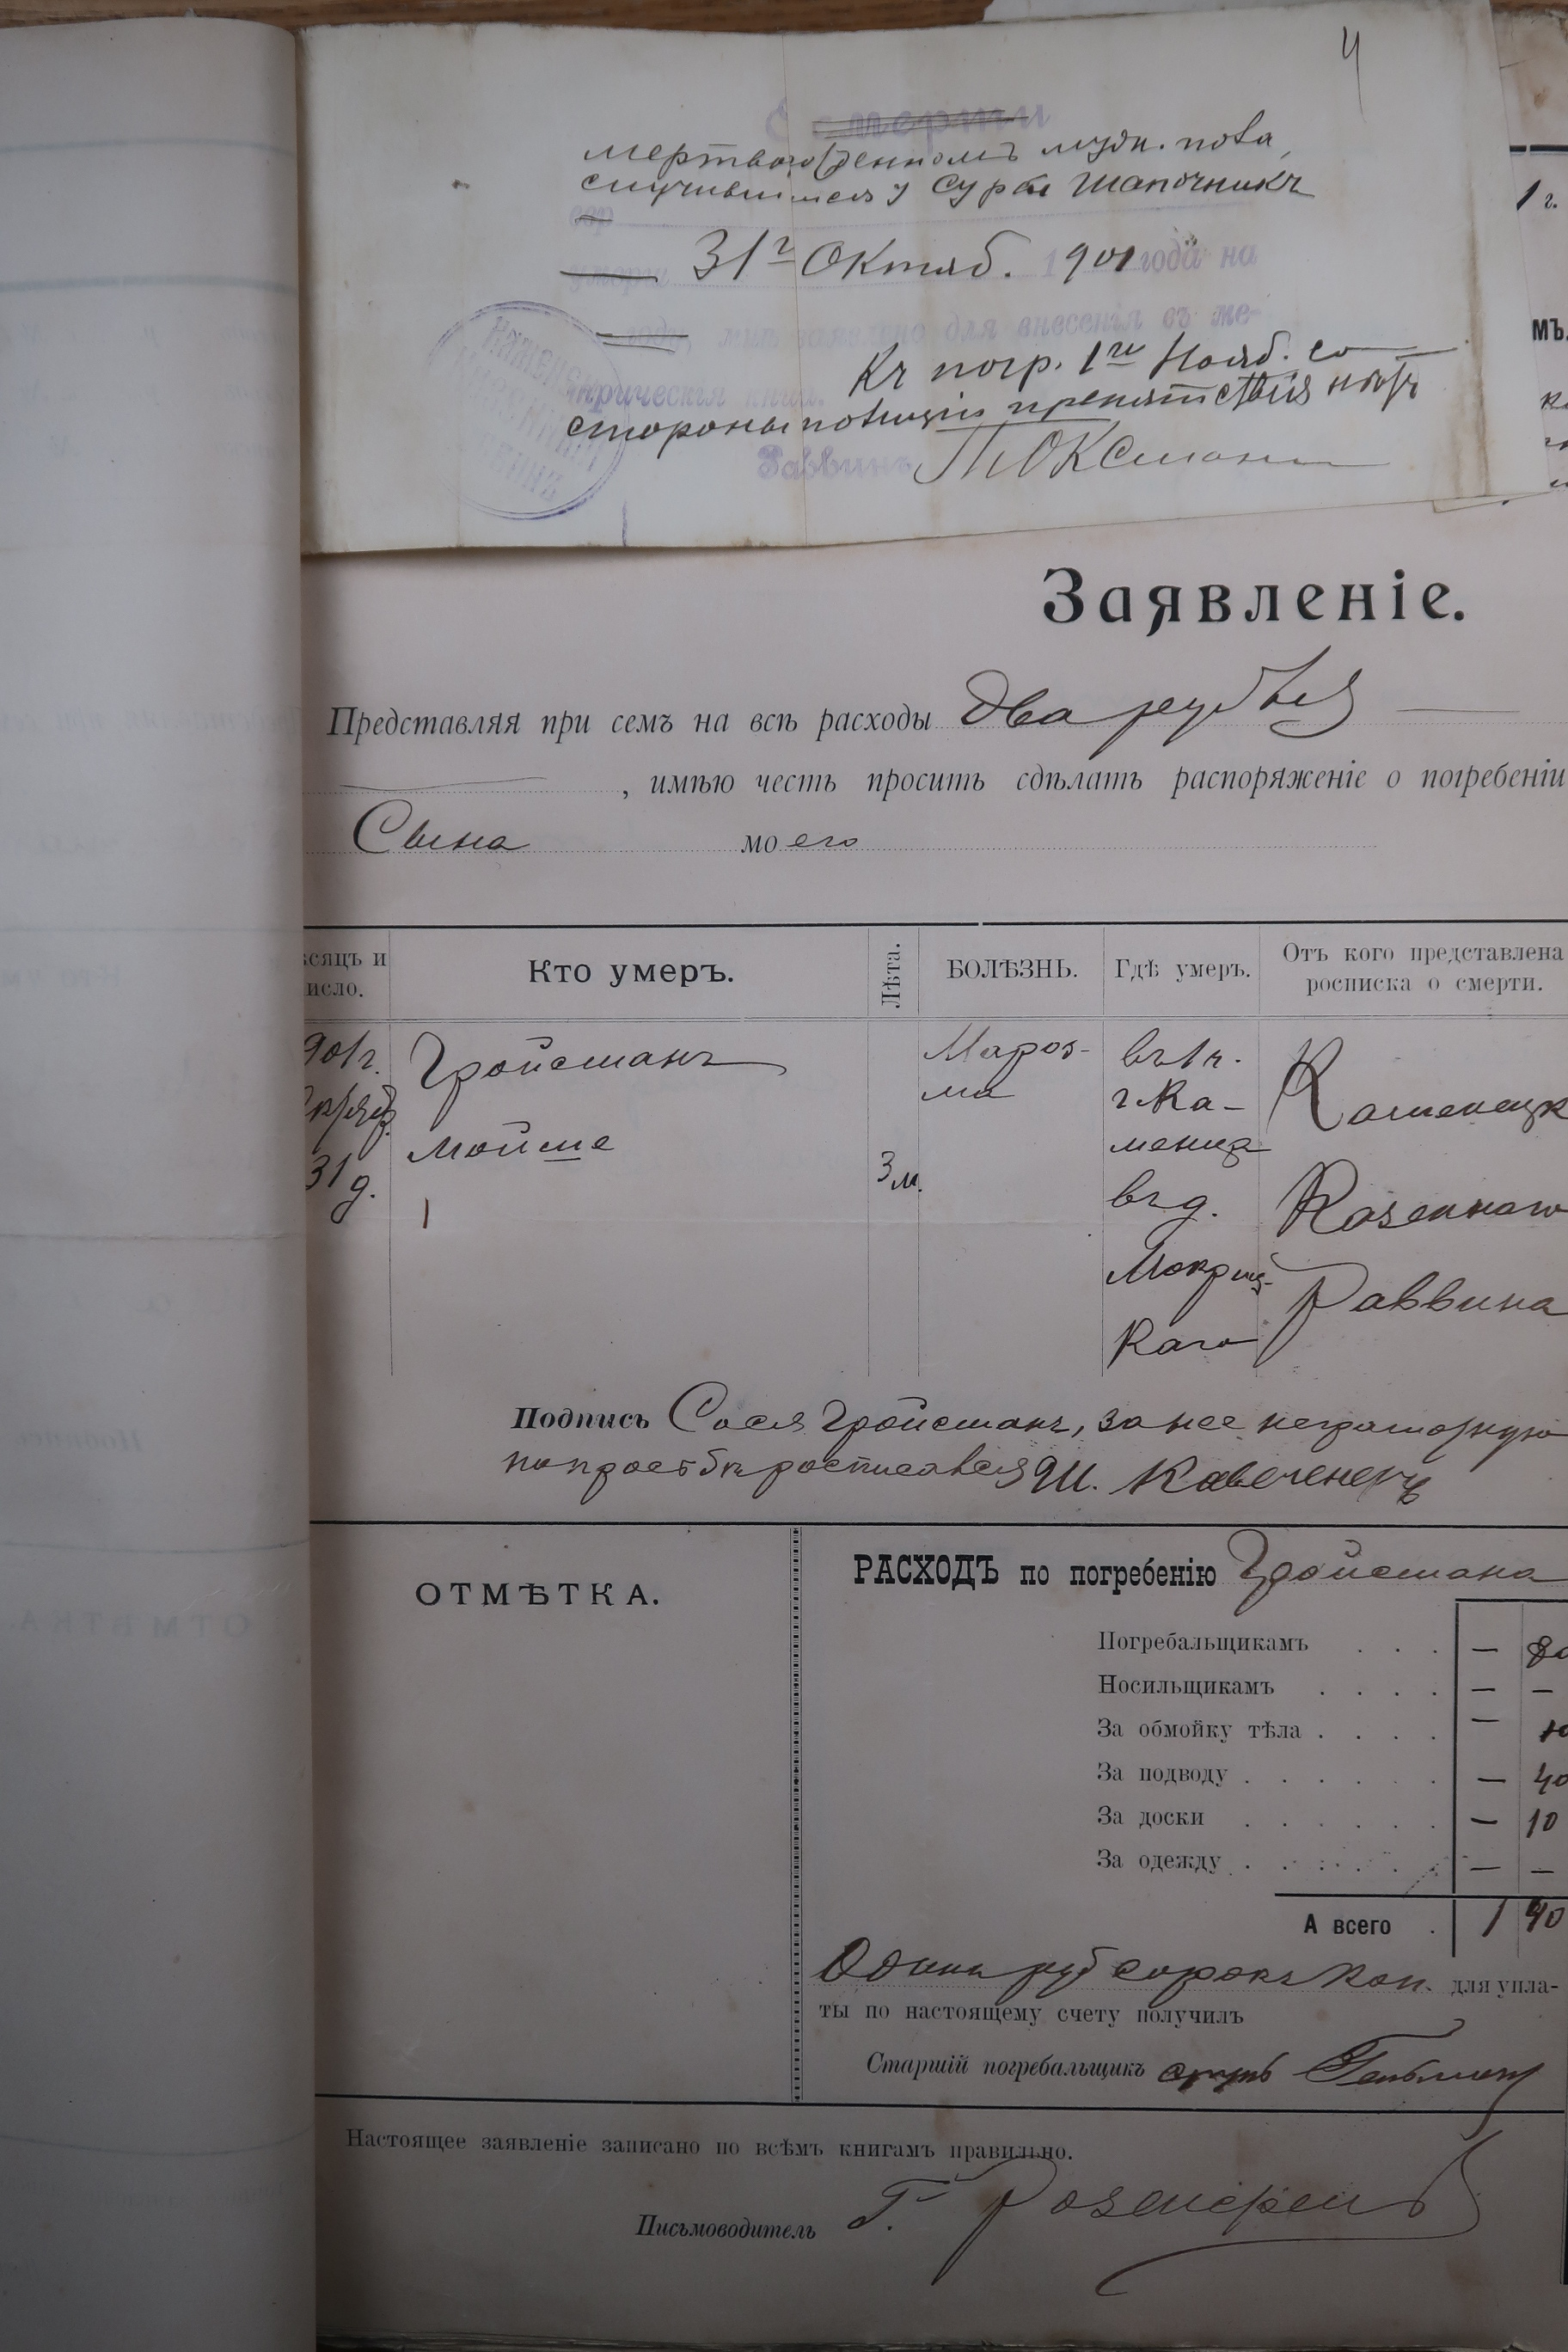 4
мертворожденномъ мужс. пола,
случившемся у Суры Шапочникъ
31го Октяб. 1901 года на
году, мнѣ заявлено для внесенія въ ме-
трическія книги. Къ погр. 1го Нояб. со
стороны полиціи препятствія нѣтъ
Раввинъ
1 г.
МЪ.
Заявленіе.
Представляя при семъ на всѣ расходы два рубля
, имѣю честь просить сдѣлать распоряженіе о погребеніи
Сына моего
сяцъ и исло.
Кто умеръ.
Лѣта.
БОЛѢЗНЬ.
Гдѣ умеръ.
Отъ кого представлена росписка о смерти.
901г.
31 д.
Гройсманъ
Мойше
1
3 м.
Мароз-
ма
въ 1 ч.
г. Ка-
менца
въ д.
Мокриц-
каго
Каменецк
Казеннаго
Раввина
Подпись Сося Гройсманъ, за нее неграмотную
по просьбѣ росписался Ш.
ОТМѢТКА.
РАСХОДЪ по погребенію Гройсмана
Погребальщикамъ . . . — 80
Носильщикамъ . . . . — —
За обмойку тѣла . . . . — 10
За подводу . . . . . . — 40
За доски . . . . . . — 10
За одежду . . . . . . — —
А всего . 1 40
Одинъ руб сорокъ коп. для упла-
ты по настоящему счету получилъ
Старшій погребальщикъ
Настоящее заявленіе записано по всѣмъ книгамъ правильно.
Письмоводитель Г.